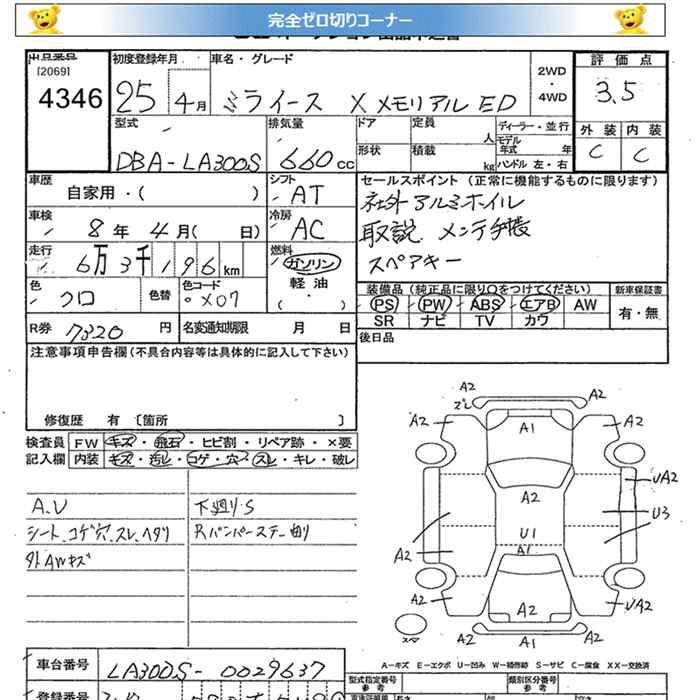 完全ゼロ切りコーナー
出品番号
[2069]
4346
初度登録年月
25年4月
車名・グレード
ミライース X メモリアル ED
2WD
・
4WD
評価点
3.5
外装 内装
C C
型式
DBA-LA300S
排気量
660cc
ドア
定員
人
形状
積載
kg
ディーラー・並行
モデル年式 年
ハンドル 左・右
車歴
自家用・( )
シフト
AT
車検
8年4月( 日)
冷房
AC
走行
6万3千196km
燃料
ガソリン
・
軽油
・
( )
色
クロ
色替
色コード
X07
R券 7320円
名変通知期限 月 日
セールスポイント (正常に機能するものに限ります)
社外アルミホイル
取説 メンテ手帳
スペアキー
装備品 (純正品に限り○をつけてください)
PS PW ABS エアB AW
SR ナビ TV カワ
新車保証書
有・無
後日品
注意事項申告欄(不具合内容等は具体的に記入して下さい)
修復歴 有 [箇所 ]
検査員
記入欄
FW キズ・飛石・ヒビ割・リペア跡・×要
内装 キズ・汚レ・コゲ・穴・スレ・キレ・破レ
A.V
シート、コゲ穴、スレ、ヘタリ
外AWキズ
下廻り・S
Rバンパーステー切リ
A2
ズレ
A2
A2
A1
A2
A2
UA2
U3
U1
A1
A2
A2
A2
UA2
A2
A1
A2
スペア
A-キズ E-エクボ U-凹み W-補修跡 S-サビ C-腐食 XX-交換済
車台番号
LA300S-0029637
型式指定番号
参考
類別区分番号
参考
登録番号